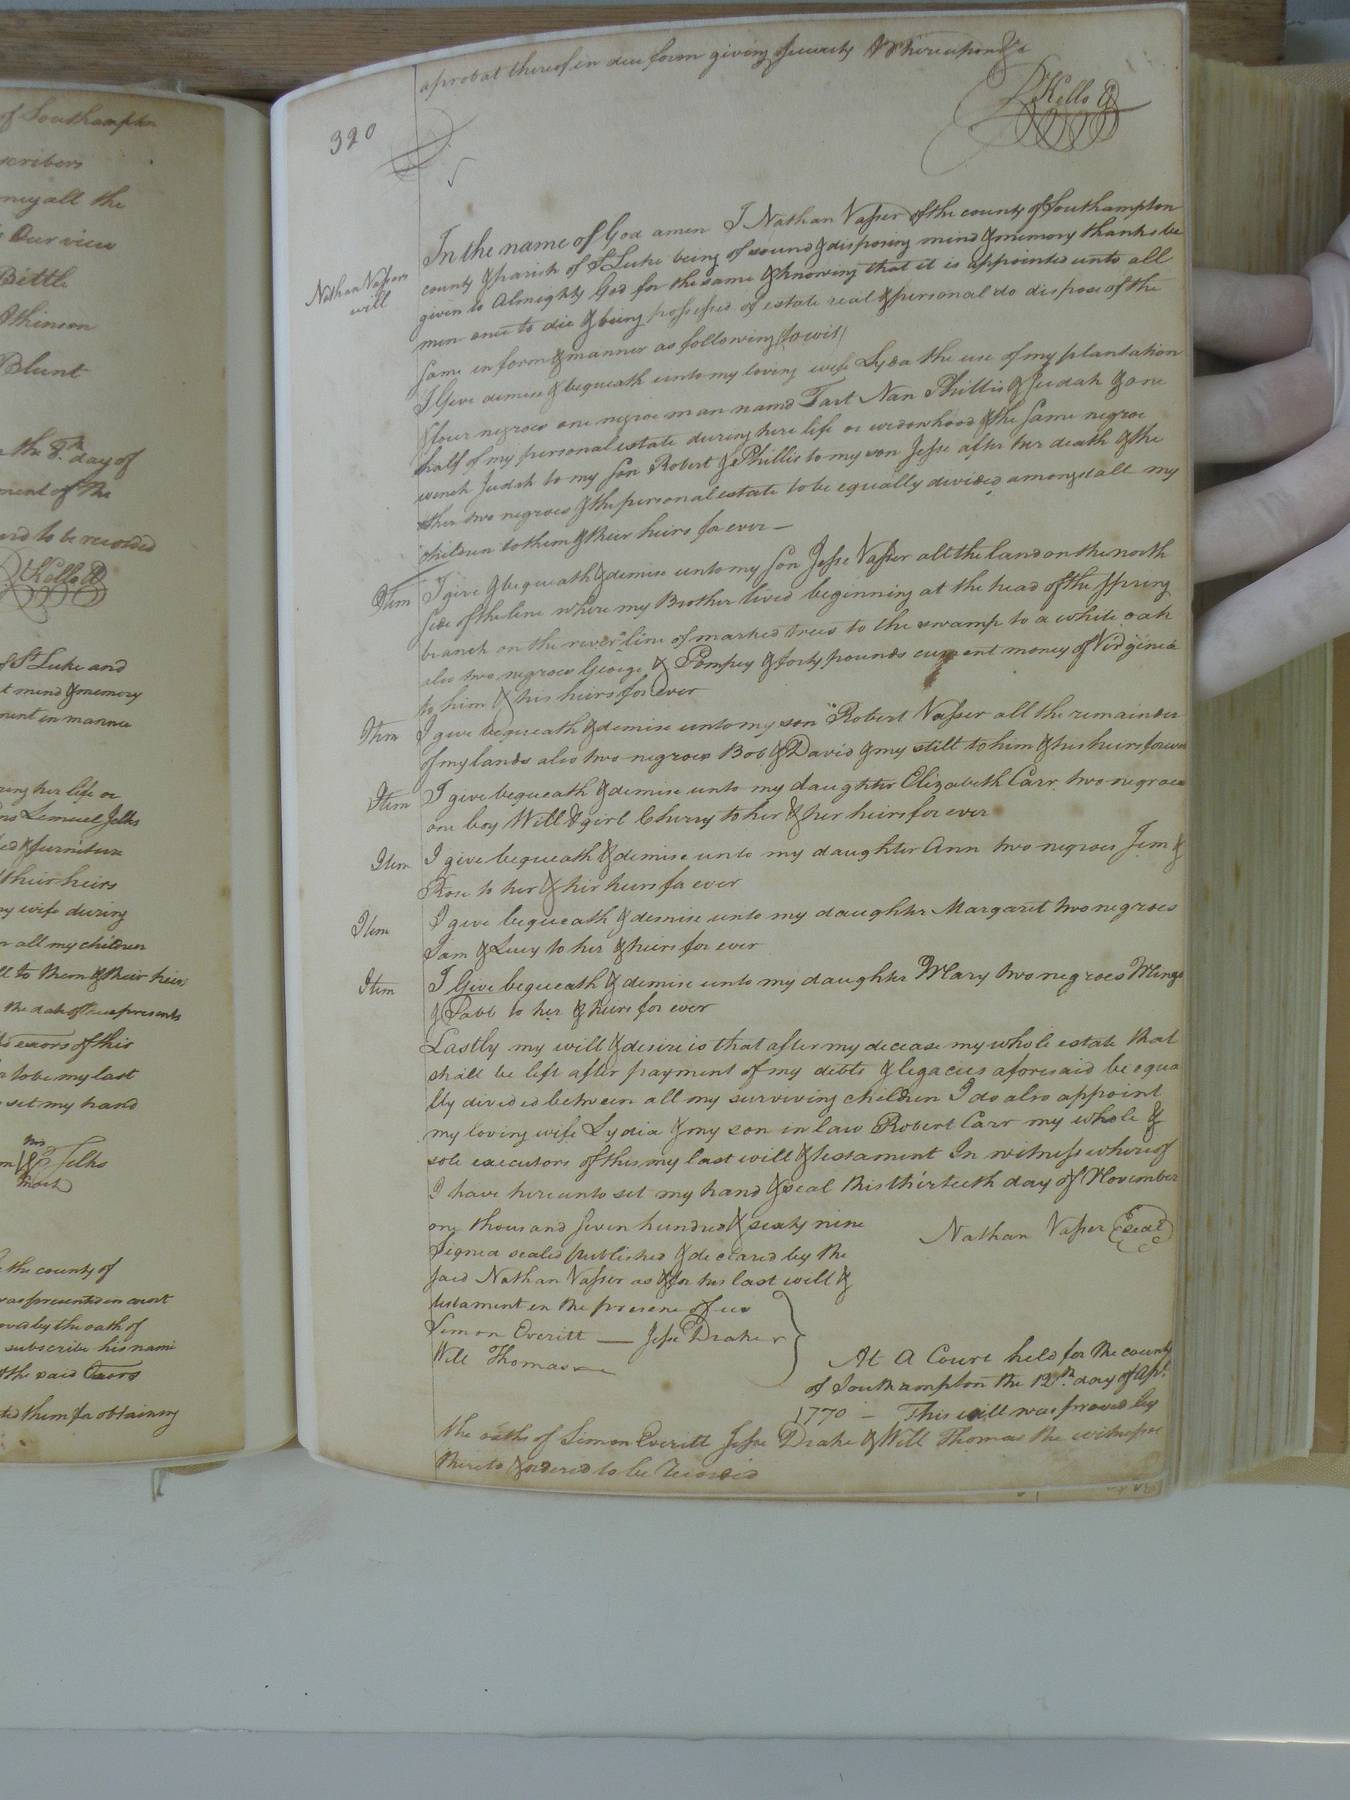 of Southampton
scribers
ney all the
Our view
Bittle
Atkinson
Blunt
the 8th day of
ment of the
and to be recorded
Kello
of St Luke and
t mind & memory
ment in manner
ring her life or
Lemuel Jelks
& furniture
their heirs
my wife during
all my children
ll to them & their heirs
the date of these presents
exors of this
to be my last
set my hand
Jelks
mark
the county of
was presented in court
oved by the oath of
subscribe his name
the said Exors
ted them for obtaining
a probat thereof in due form giving security & Whereupon &c
Kello
320
Nathan Vasser
will
In the name of God amen I Nathan Vasser of the county of Southampton
county & parish of St Luke being of sound & disposing mind & memory thanks be
given to Almighty God for the same & knowing that it is appointed unto all
men once to die & being possessed of estate real & personal do dispose of the
same in form & manner as following (towit)
I Give demise & bequeath unto my loving wife Lyda the use of my plantation
& four negroes one negroe man namd Tart Nan Phillis & Judah & one
half of my personal estate during here life or widowhood & the same negroe
wench Judah to my son Robert & Phillis to my son Jesse after her death & the
other two negroes & the personal estate to be equally divided amongst all my
children to them & their heirs for ever —
Item I give & bequeath & demise unto my son Jesse Vasser all the land on the north
side of the line where my Brother lived beginning at the head of the spring
branch on the river line of marked trees to the swamp to a white oak
also two negroes George & Pompey & forty pounds current money of Virginia
to him & his heirs for ever
Item I give bequeath & demise unto my son Robert Vasser all the remainder
of my lands also two negroes Bob & David & my still to him & his heirs forever
Item I give bequeath & demise unto my daughter Elizabeth Carr two negroes
one boy Will & girl Cherry to her & her heirs for ever
Item I give bequeath & demise unto my daughter Ann two negroes Jem &
Rose to her & hir heirs for ever
Item I give bequeath & demise unto my daughter Margaret two negroes
Sam & Lucy to her & heirs for ever
Item I Give bequeath & demise unto my daughter Mary two negroes Mingo
& to her & heirs for ever
Lastly my will & desire is that after my decease my whole estate that
shall be left after payment of my debts & legacies aforesaid be equa
lly divided between all my surviving children I do also appoint
my loving wife Lydia & my son in law Robert Carr my whole &
sole executors of this my last will & testament In witness whereof
I have hereunto set my hand & seal this thirteeth day of November
one thousand seven hundred & sixty nine
Nathan Vasser (seal)
Signed sealed published & declared by the
said Nathan Vasser as & for his last will &
testament in the presene of us
Simon Everitt — Jesse Drake
Will Thomas
At A Court held for the county
of Southampton the 12th day of Apl.
1770 — This will was proved by
the oaths of Simon Everitt Jesse Drake & Will Thomas the witnesses
thereto & ordered to be Recorded